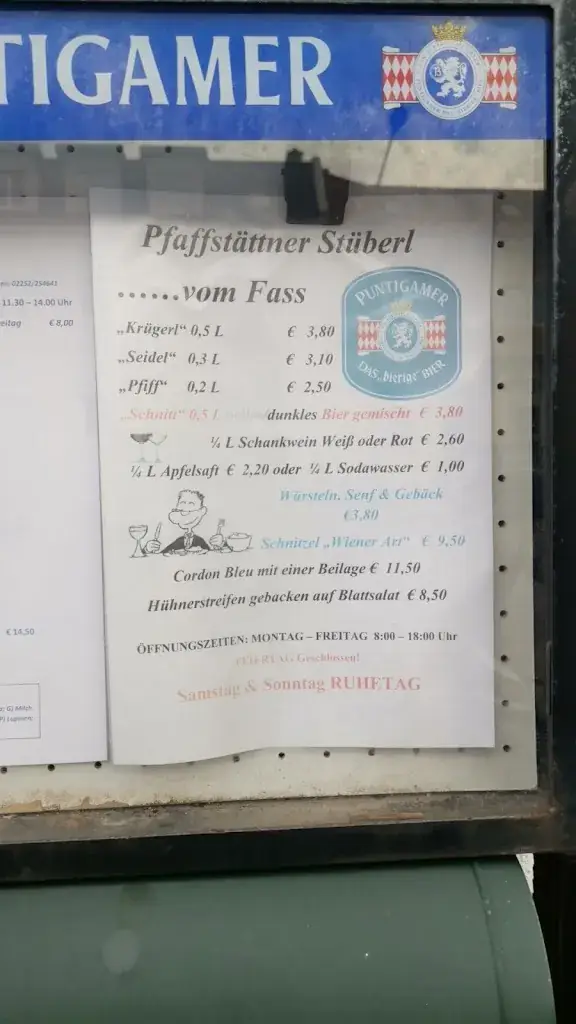 TIGAMER
02252/254641
11.30 – 14.00 Uhr
eitag € 8,00
€ 14,50
G) Milch
P) Lupinen;
Pfaffstättner Stüberl
......vom Fass
PUNTIGAMER
DAS „bierige" BIER
„Krügerl" 0,5 L € 3,80
„Seidel" 0,3 L € 3,10
„Pfiff" 0,2 L € 2,50
„Schnitt" 0,5 L /dunkles Bier gemischt € 3,80
¼ L Schankwein Weiß oder Rot € 2,60
¼ L Apfelsaft € 2,20 oder ¼ L Sodawasser € 1,00
Würsteln, Senf & Gebäck
€3,80
Schnitzel „Wiener Art" € 9,50
Cordon Bleu mit einer Beilage € 11,50
Hühnerstreifen gebacken auf Blattsalat € 8,50
ÖFFNUNGSZEITEN: MONTAG – FREITAG 8:00 – 18:00 Uhr
FEIERTAG Geschlossen!
Samstag & Sonntag RUHETAG